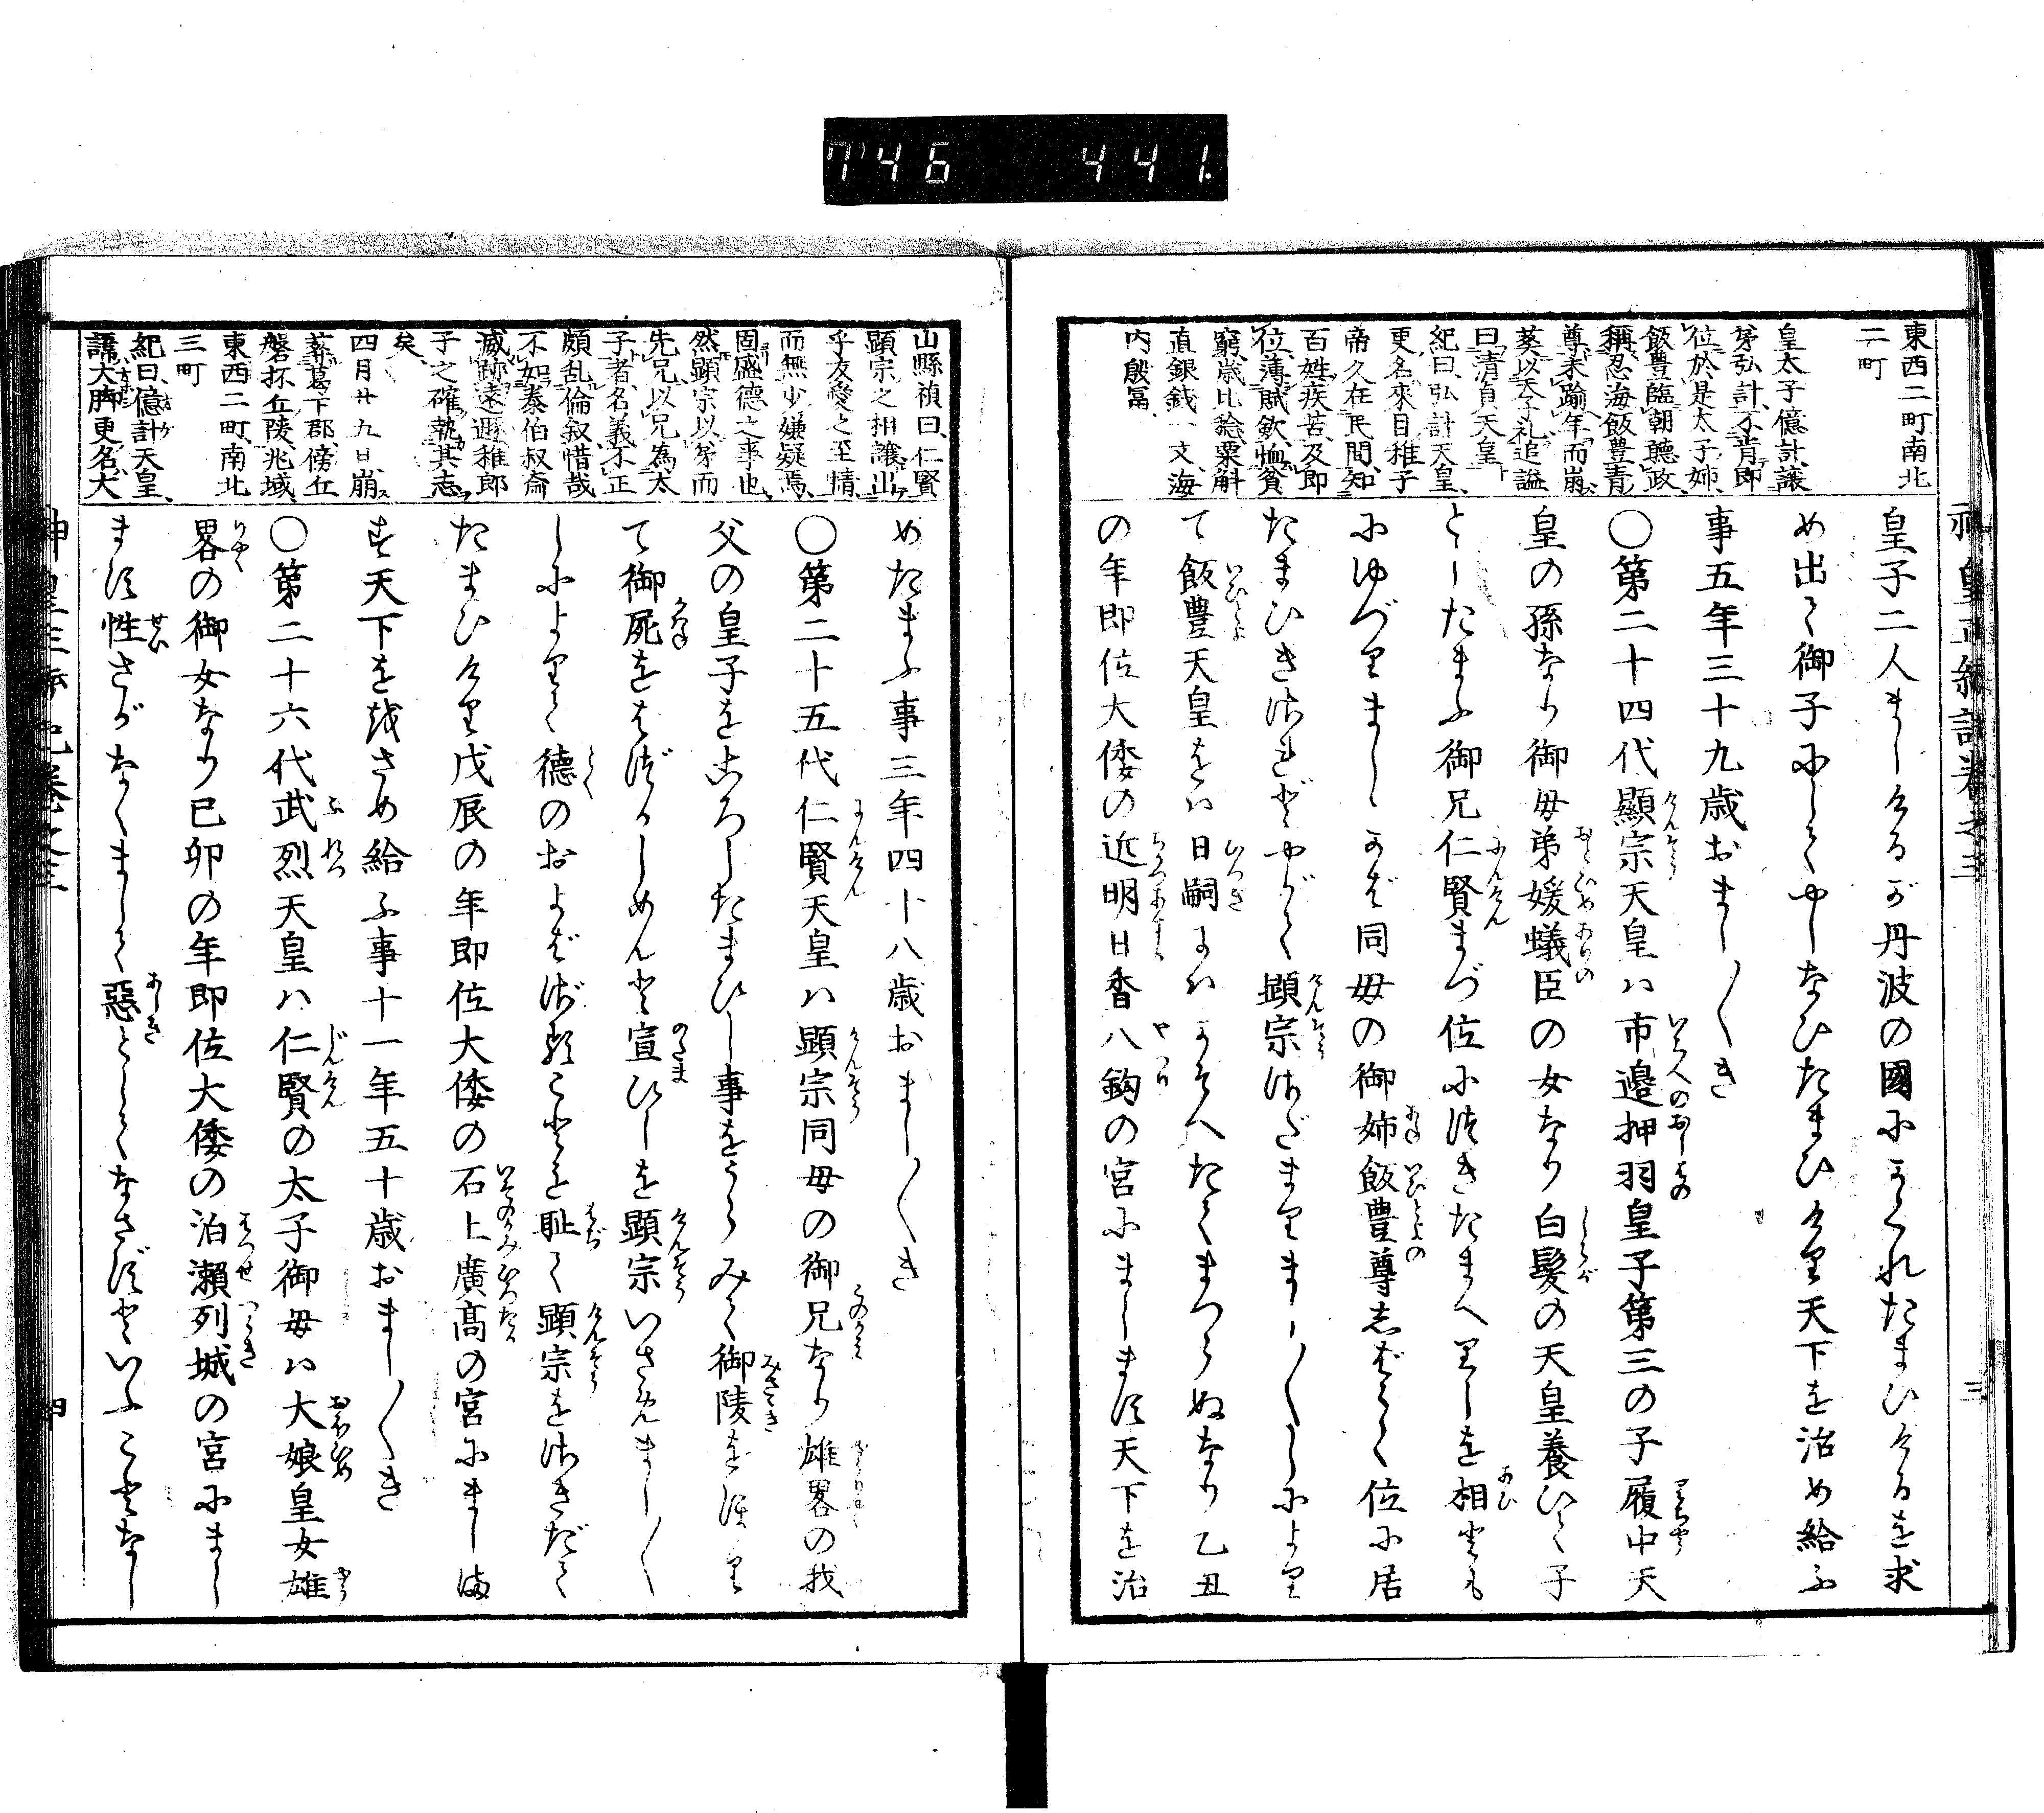 746 441.
神皇正統記巻之三
三
東西二町南北
二町
皇太子億計譲
弟弘計、不肯即
位於是太子姉、
飯豊臨朝聴政、
稱忍海飯豊青
尊未踰年而崩
葬以天子礼追謚
曰清貞天皇
紀曰、弘計天皇、
更名来目稚子
帝久在民間、知
百姓疾苦、及即
位薄賦歛、恤貧
窮、歳比稔粟斛
直銀銭一文、海
内殷富、
皇子二人ましけるが丹波の國にかくれたまひけるを求
め出て御子にしてやしなひたまひけり天下を治め給ふ
事五年三十九歳おまし〳〵き
○第二十四代顯宗天皇ハ市邉押羽皇子第三の子履中天
皇の孫なり御母弟媛蟻臣の女なり白髪の天皇養ひて子
としたまふ御兄仁賢まづ位につきたまへりしを相とも
にゆづりましゝかば同母の御姉飯豊尊志ばらく位に居
たまひきされどやがて顕宗さだまりまし〳〵しによりて
飯豊天皇をハ日嗣にハかぞへたてまつらぬなり乙丑
の年即位大倭の近明日香八鈎の宮にまします天下を治
山縣禎曰、仁賢
顕宗之相譲出
乎友愛之至情、
而無少嫌疑焉、
固盛徳之事也、
然顕宗以弟而
先兄、以兄為太
子者、名義不正
頗乱倫叙、惜哉
不如泰伯叔斎
滅跡遠遯稚郎
子之確執其志
矣、
四月廿九日崩
葬葛下郡、傍丘
磐抔丘陵、兆域、
東西二町、南北
三町
紀曰、億計天皇、
諱大脚更名大
めたまふ事三年四十八歳おまし〳〵き
○第二十五代仁賢天皇ハ顕宗同母の御兄なり雄畧の我
父の皇子をころしたまひし事をうらみて御陵をほり
て御屍をはづかしめんと宣ひしを顕宗いさめまし〳〵
しによりて徳のおよばざることを耻て顕宗をさきだて
たまひけり戊辰の年即位大倭の石上廣髙の宮にましま
す天下を治さめ給ふ事十一年五十歳おまし〳〵き
○第二十六代武烈天皇ハ仁賢の太子御母ハ大娘皇女雄
畧の御女なり己卯の年即位大倭の泊瀬列城の宮にまし
ます性さがなくまして惡としてなさずといふことなし
神皇正統記巻之三
四